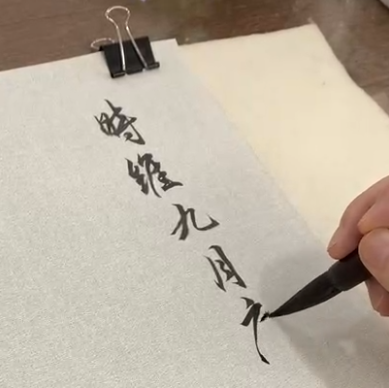 時維九月